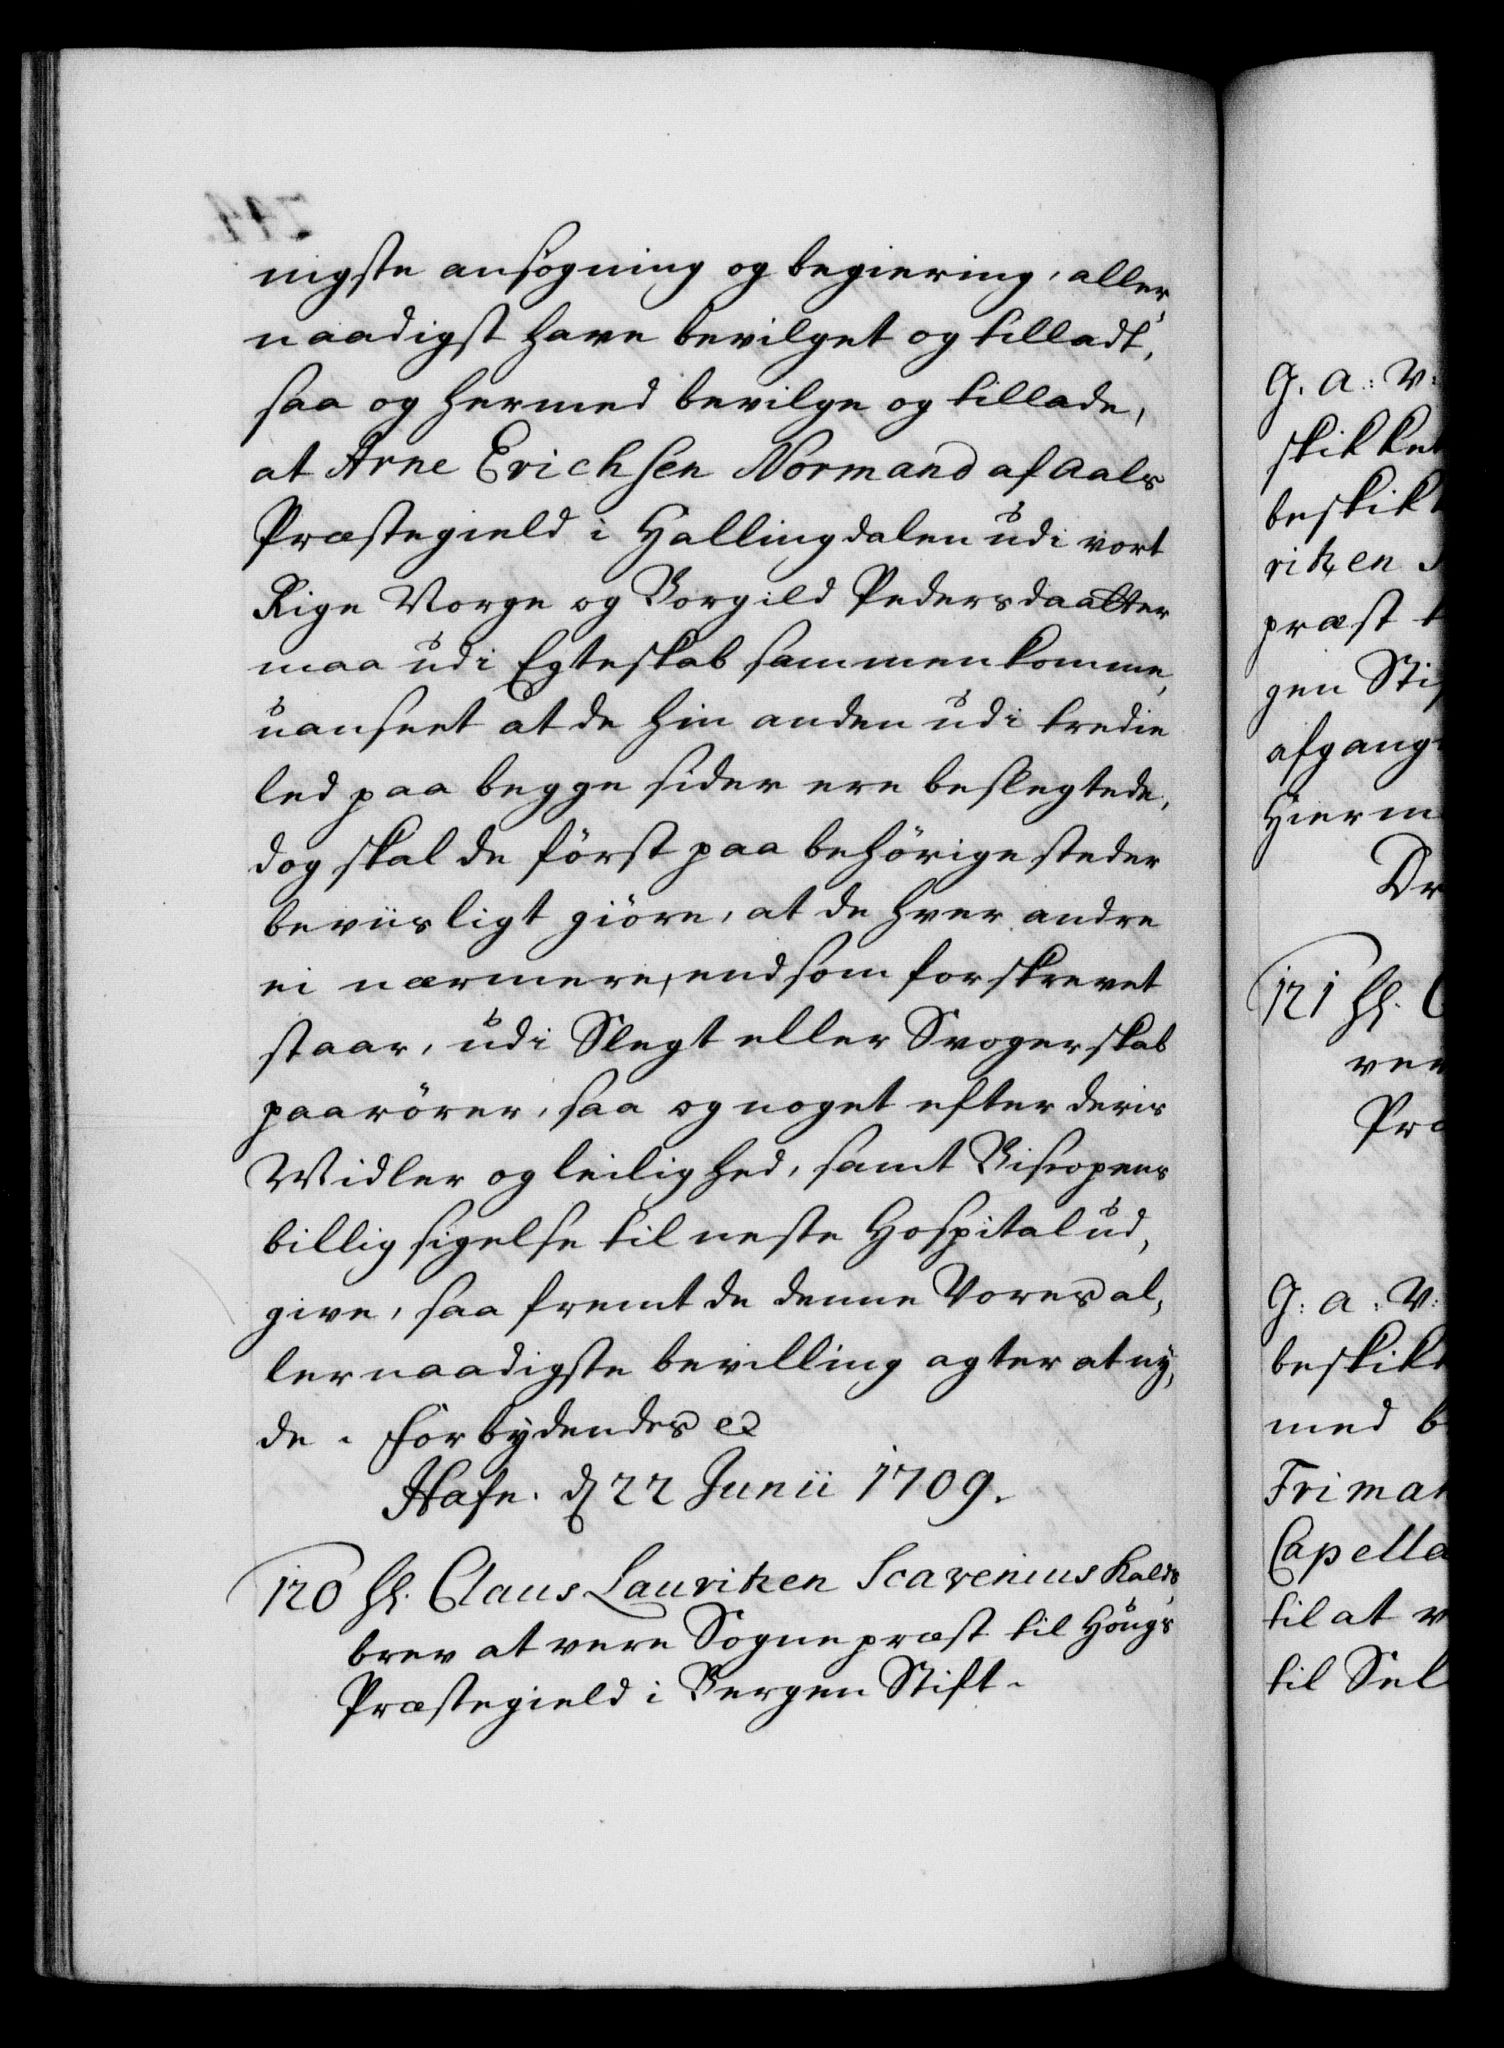 nigste ansögning og begiering, aller,
naadigst have bevilget og tilladt,
saa og hermed bevilge og tillade,
at Arne Erichsen Normand af Aals
Præstegield i Hallingdalen udi vort
Rige Norge og Borgild Pedersdaatter
maa udi Egteskab sammenkomme,
uanseet at de hin anden udi tredie
led paa begge sider ere beslegtede,
dog skal de först paa behörige steder
beviisligt giöre, at de hver andre
ei nærmere, end som forskrevet
staar, udi Slegt eller Svogerskab
paarörer, saa og noget efter deris
Midler og leilighed, samt Biscopens
billig sigelse til neste Hospital ud,
give, saa fremt de denne Vores al,
lernaadigste bevilling agter at ny,
de. Forbydendes &
Hafn. d 22 Junii 1709.
120 Hr. Claus Lauritzen Scavenius Kalds
brev at vere Sognepræst til Höugs
Præstegield i Bergen Stift.
G. A. V:
skikket
beskikt
ritzen
præst
gen Stif
afgang
Hierm
121 Hr.
G: a: V:
beskikt
med b
Friman
Capella
til at v
til Sel